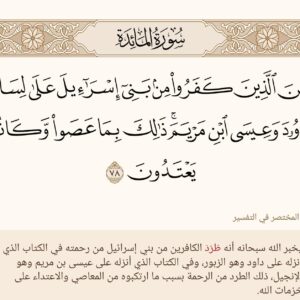 سُورَةُ المَائِدَةِ
نَ الَّذِينَ كَفَرُوا مِنْ بَنِي إِسْرَائِيلَ عَلَى لِسَا
وُودَ وَعِيسَى ابْنِ مَرْيَمَ ۚ ذَٰلِكَ بِمَا عَصَوا وَّكَانُ
يَعْتَدُونَ ٧٨
المختصر في التفسير
يخبر الله سبحانه أنه طرد الكافرين من بني إسرائيل من رحمته في الكتاب الذي
نزله على داود وهو الزبور، وفي الكتاب الذي أنزله على عيسى بن مريم وهو
لإنجيل، ذلك الطرد من الرحمة بسبب ما ارتكبوه من المعاصي والاعتداء على
حُرُمات الله.